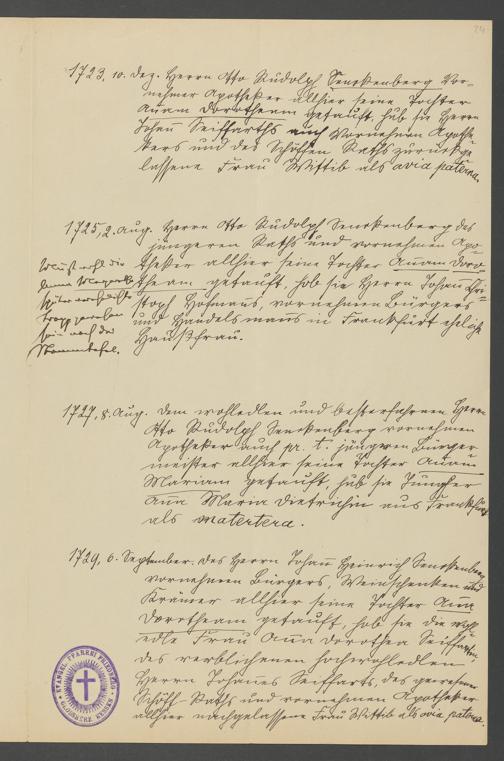 24
1723, 10. Dez. Herrn Otto Rudolph Senckenberg Vor-
nehmer Apotheker allhier seine Tochter
Annam Dorotheam getauft, hub sie Herrn
Johann Seiffarths auch Vornehmen Apothe-
kers und des Schöffen Raths zurückge
lassene Frau Wittib als avia paterna.
1725, 2. Aug. Herrn Otto Rudolph Senckenberg des
jüngeren Raths und vornehmen Apo-
theker allhier seine Tochter Annam Doro-
theam getauft, hob sie Herrn Johann Chri-
stoph Hofmanns, vornehmen Bürgers
und Handelsmanns in Frankfurt eheliche
Haußfrau.
Muß wohl die
später
sein nach der
Stammtafel.
1727, 8. Aug. Dem wohledlen und besterfahrenen Herrn
Otto Rudolph Senckenberg vornehmen
Apotheker auch pr. t. jüngeren Bürger
meister allhier seine Tochter Annam
Mariam getauft, hub sie Jungfer
Anna Maria Dietrichin aus Frankfurt
als matertera.
1729, 6. September. Des Herrn Johann Heinrich Senckenberg
vornehmen Bürgers, Weinschenken und
Krämer allhier seine Tochter Anna
Dorotheam getauft, hob sie die wohl
edle Frau Anna Dorothea Seiffarthin,
des verblichenen hochwohledlen
Herrn Johannes Seiffarts, des gewesenen
Schöff Raths und vornehmen Apotheker
allhier nachgelassene Frau Wittib als avia paterna.
EVANGEL. PFARREI FRIEDBERG